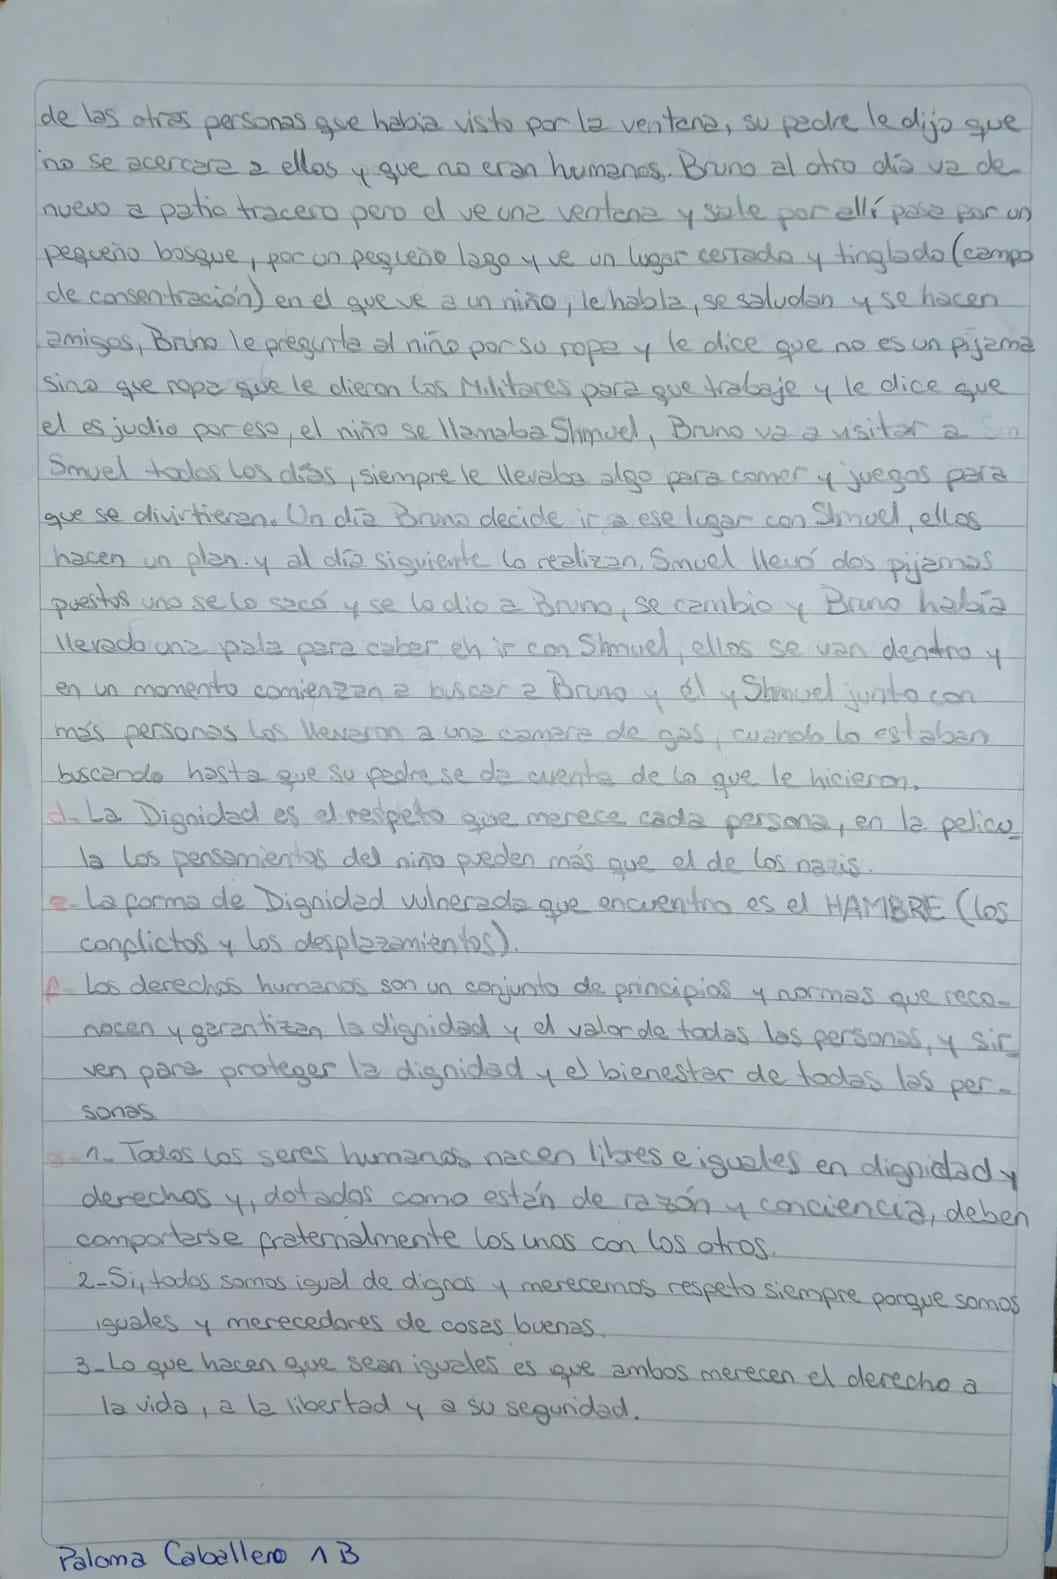 de las otras personas que habia visto por la ventana, su padre le dijo que
no se acercara a ellos y que no eran humanos. Bruno al otro día va de
nuevo a patio tracero pero el ve una ventana y sale por allí pasa por un
pequeño bosque, por un pequeño lago y ve un lugar cerrado y tinglado (campo
de consentración) en el que ve a un niño, le habla, se saludan y se hacen
amigos, Bruno le pregunta al niño por su ropa y le dice que no es un pijama
sino que ropa que le dieron los Militares para que trabaje y le dice que
el es judio por eso, el niño se llamaba Shmuel, Bruno va a visitar a
Smuel todos los días, siempre le llevaba algo para comer y juegos para
que se divirtieran. Un día Bruno decide ir a ese lugar con Shmuel, ellos
hacen un plan. y al día siguiente lo realizan, Smuel llevó dos pijamas
puestos uno se lo sacó y se lo dio a Bruno, se cambio y Bruno había
llevado una pala para cabar e ir con Shmuel, ellos se van dentro y
en un momento comienzan a buscar a Bruno y él y Shmuel junto con
más personas los llevaron a una camara de gas, cuando lo estaban
buscando hasta que su padre se da cuenta de lo que le hicieron.
d- La Dignidad es el respeto que merece cada persona, en la pelicu
la los pensamientos del niño pueden más que el de los nazis.
e- La forma de Dignidad vulnerada que encuentro es el HAMBRE (los
conflictos y los desplazamientos).
f- Los derechos humanos son un conjunto de principios y normas que reco-
nocen y garantizan la dignidad y el valor de todas las personas, y sir-
ven para proteger la dignidad y el bienestar de todas las per-
sonas
1- Todos los seres humanos nacen libres e iguales en dignidad y
derechos y, dotados como están de razón y conciencia, deben
comportarse fraternalmente los unos con los otros.
2- Si, todos somos igual de dignos y merecemos respeto siempre porque somos
iguales y merecedores de cosas buenas.
3- Lo que hacen que sean iguales es que ambos merecen el derecho a
la vida, a la libertad y a su seguridad.
Paloma Caballero 1B